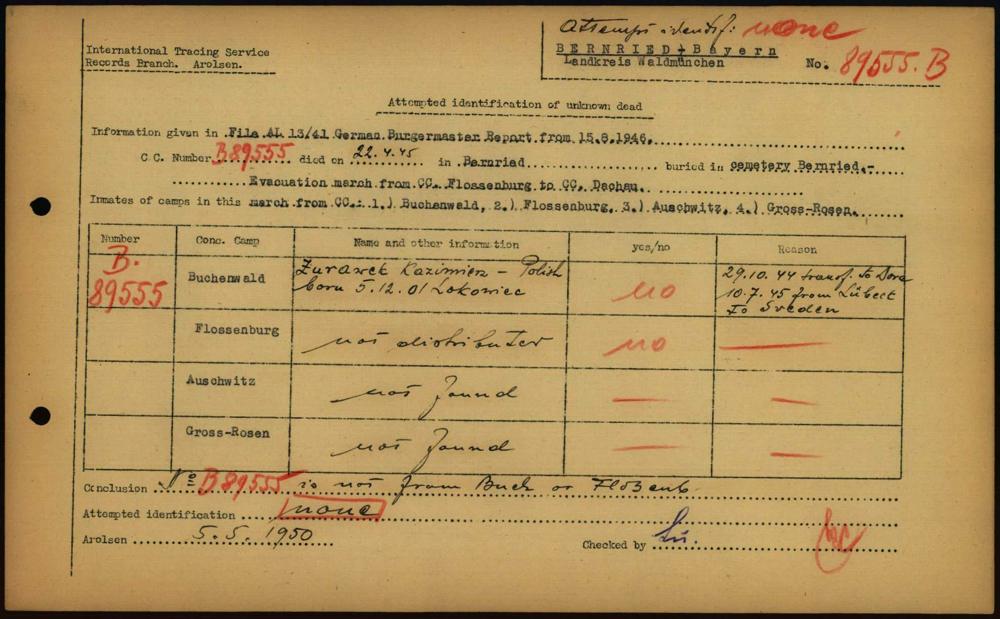 Attempt identif: none
International Tracing Service
Records Branch. Arolsen.
BERNRIED - Bayern
Landkreis Waldmünchen
No. 89555. B
Attempted identification of unknown dead
Information given in File AL 13/41 German Burgermaster Report from 15.8.1946.
C.C. Number B 89555 died on 22.4.45 in Bernried buried in cemetery Bernried.-
Evacuation march from CC. Flossenburg to CC. Dachau.
Inmates of camps in this march from CC.: 1.) Buchenwald, 2.) Flossenburg, 3.) Auschwitz, 4.) Gross-Rosen.
Number Conc. Camp Name and other information yes/no Reason
B. 89555 Buchenwald Zurawek Kazimierz - Polish born 5.12.01 Lokowiec no 29.10.44 transf. to Dora 10.7.45 from Lübeck to Sveden
Flossenburg not distributer no —
Auschwitz not found — —
Gross-Rosen not found — —
Conclusion No B 89555 is not from Buch or Flosenb
Attempted identification none
Arolsen 5.5.1950 Checked by